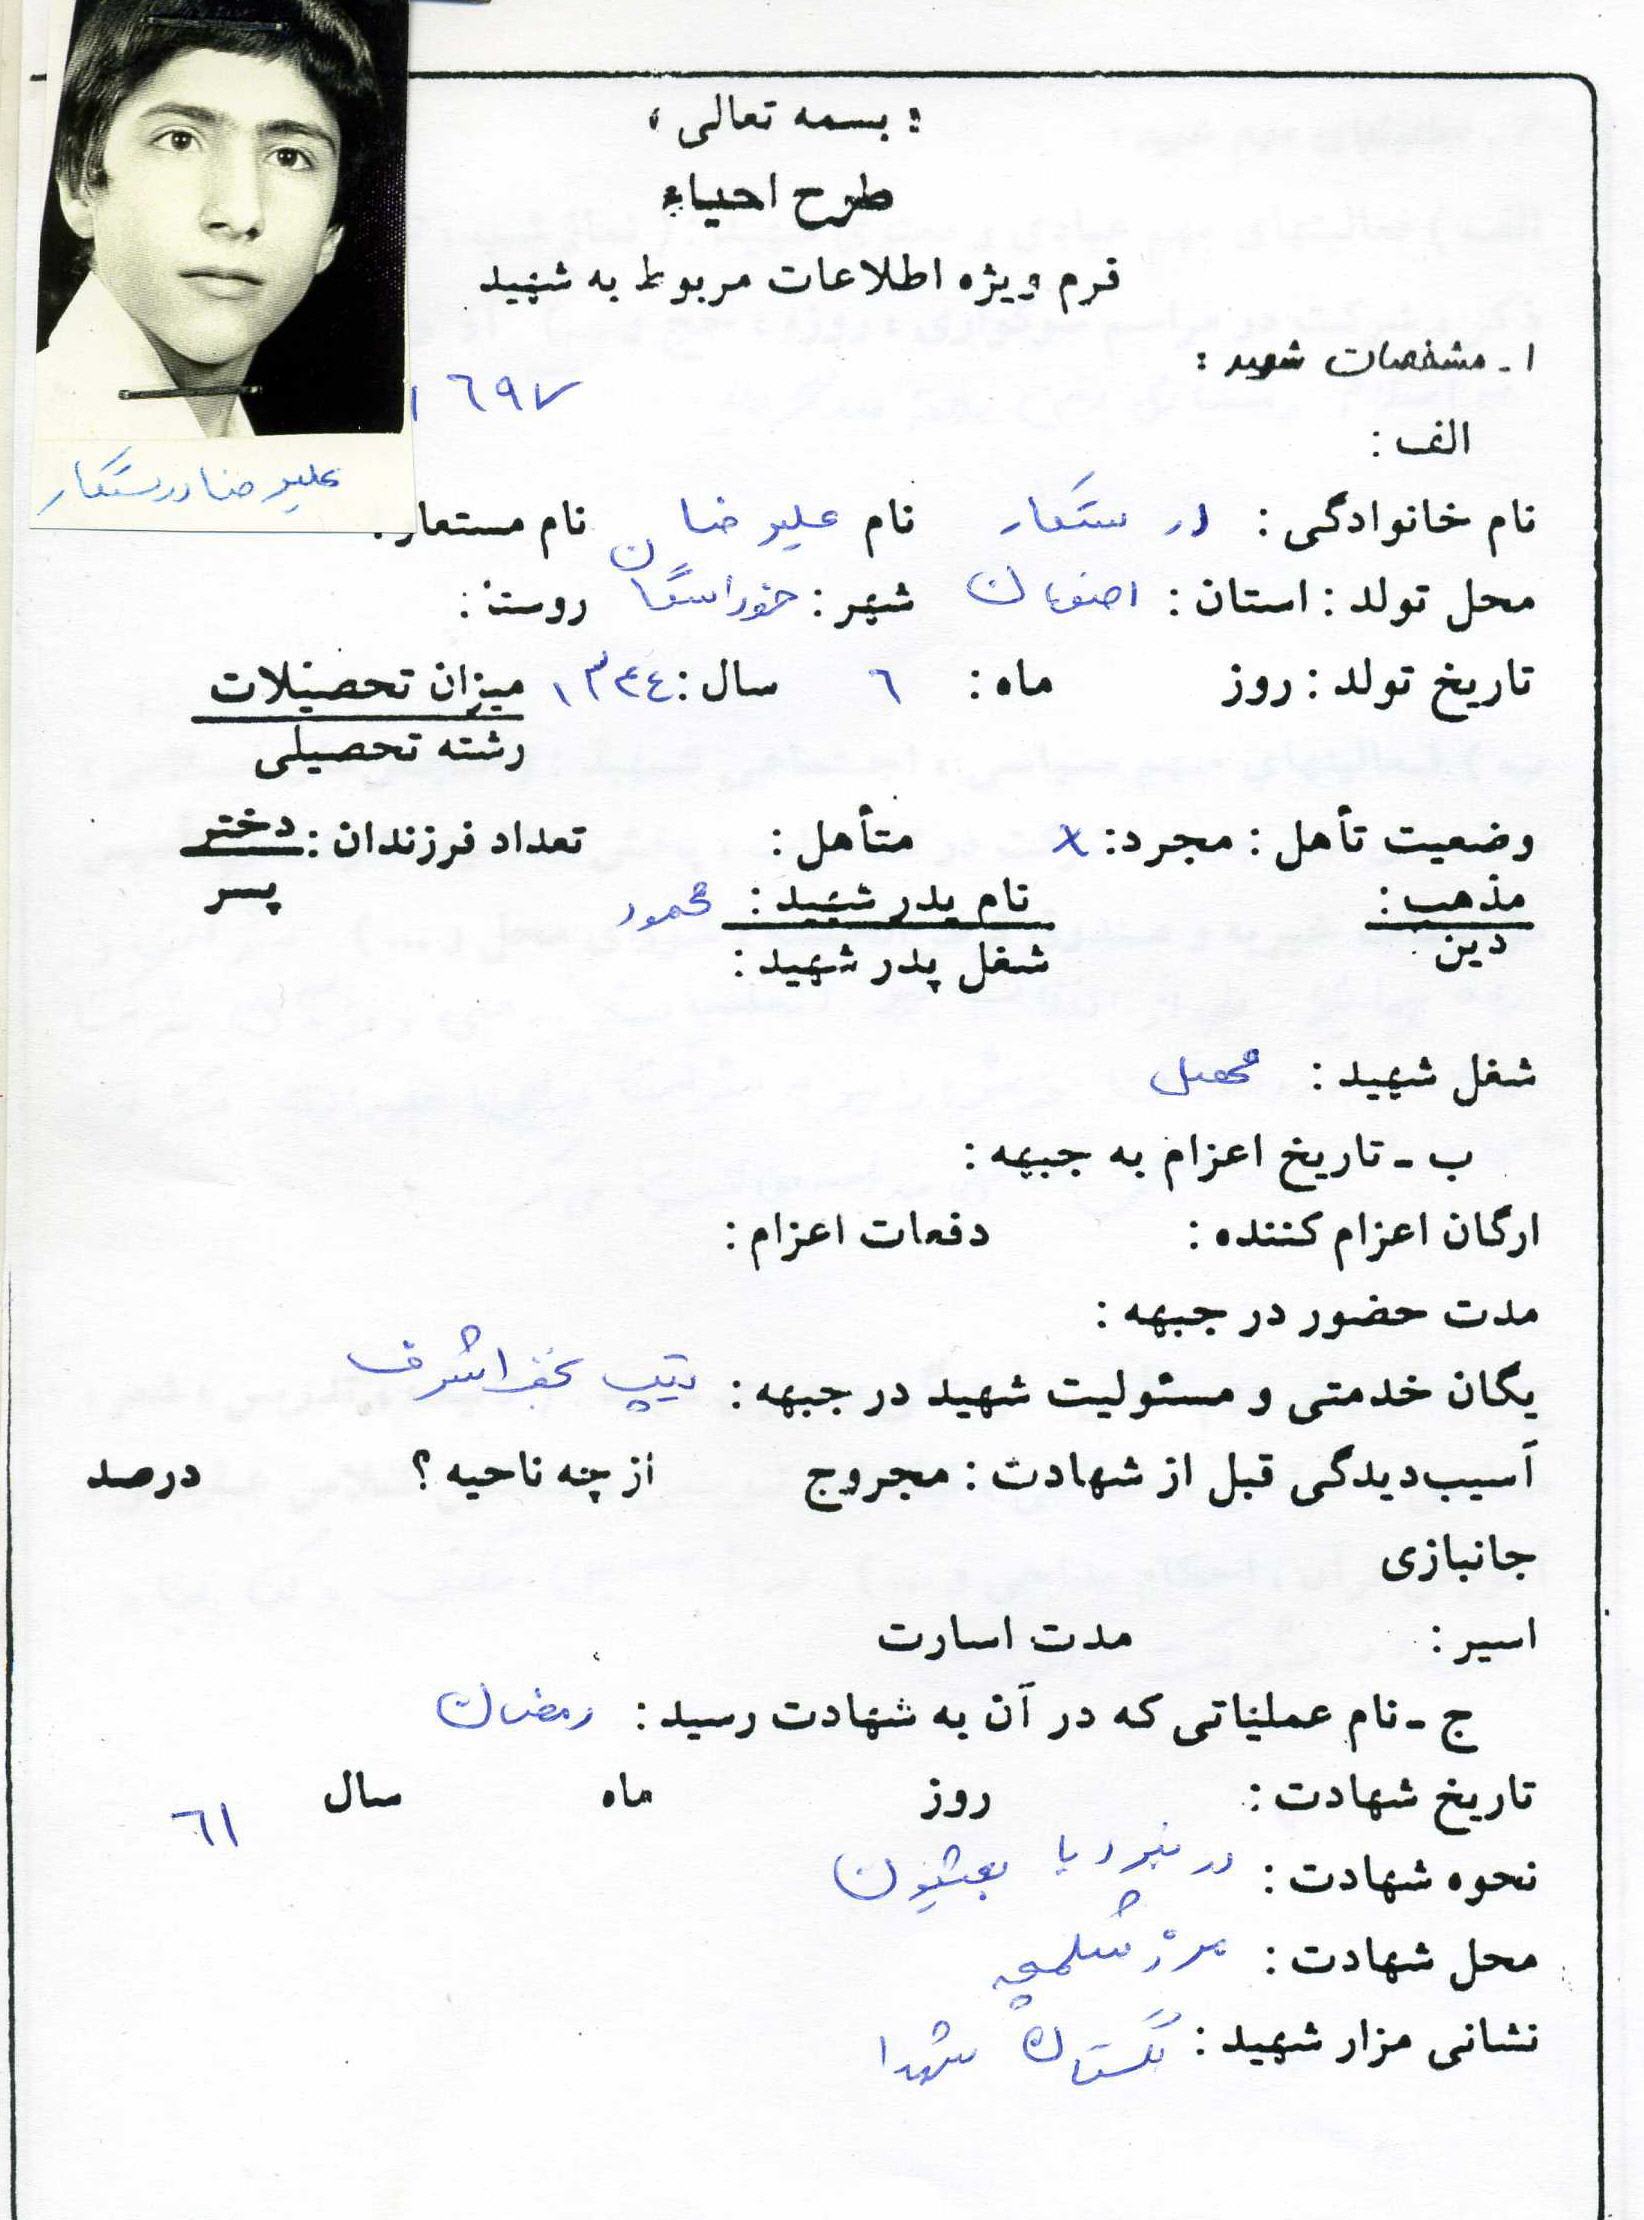 : بسمه تعالی ،
طرح احیاء
فرم ویژه اطلاعات مربوط به شهید
۱ـ مشخصات شهید :
۱۶۹۷
الف :
علیرضا درستکار
نام خانوادگی : درستکار نام علیرضا نام مستعار :
محل تولد : استان : اصفهان شهر : خوراسگان روستا :
تاریخ تولد : روز ماه : ۶ سال : ۱۳۴۴ میزان تحصیلات
رشته تحصیلی
وضعیت تأهل : مجرد : x متأهل : تعداد فرزندان : دختر
پسر
مذهب : نام پدر شهید : محمود
دین : شغل پدر شهید :
شغل شهید : محصل
ب ـ تاریخ اعزام به جبهه :
ارگان اعزام کننده : دفعات اعزام :
مدت حضور در جبهه :
یگان خدمتی و مسئولیت شهید در جبهه : تیپ نجف اشرف
آسیب‌دیدگی قبل از شهادت : مجروح از چه ناحیه ؟ درصد
جانبازی
اسیر : مدت اسارت
ج ـ نام عملیاتی که در آن به شهادت رسید : رمضان
تاریخ شهادت : روز ماه سال ۶۱
نحوه شهادت : در نبرد با بعثیون
محل شهادت : مرز شلمچه
نشانی مزار شهید : گلستان شهدا